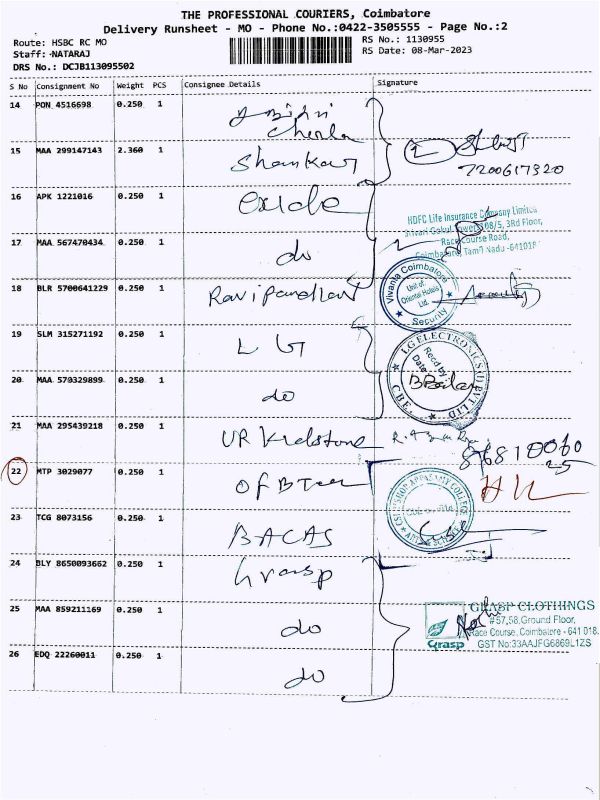 THE PROFESSIONAL COURIERS, Coimbatore
Delivery Runsheet - MO - Phone No.:0422-3505555 - Page No.:2
Route: HSBC RC MO
RS No.: 1130955
Staff: NATARAJ
RS Date: 08-Mar-2023
DRS No.: DCJB113095502
S No Consignment No Weight PCS Consignee Details Signature
14 PON 4516698 0.250 1
15 MAA 299147143 2.360 1 Shankar
7200617320
16 APK 1221016 0.250 1 Exide
HDFC Life Insurance Company Limited
3rd Floor,
Race Course Road,
Coimbatore, Tamil Nadu -641018
17 MAA 567470434 0.250 1 do
18 BLR 5700641229 0.250 1
Vivanta Coimbatore
Unit of
Oriental Hotels
Ltd.
Security
19 SLM 315271192 0.250 1 LG
LG ELECTRONICS (I) PVT LTD
CBE.
Recd by
Date
20 MAA 570329899 0.250 1 do
21 MAA 295439218 0.250 1 UR
22 MTP 3029077 0.250 1
BISHOP APPASAMY COLLEGE
23 TCG 8073156 0.250 1 BACAS
24 BLY 8650093662 0.250 1 Grasp
25 MAA 859211169 0.250 1 do
GRASP CLOTHINGS
#57,58,Ground Floor,
Race Course, Coimbatore - 641 018.
GST No:33AAJFG6869L1ZS
Grasp
26 EDQ 22260011 0.250 1 do